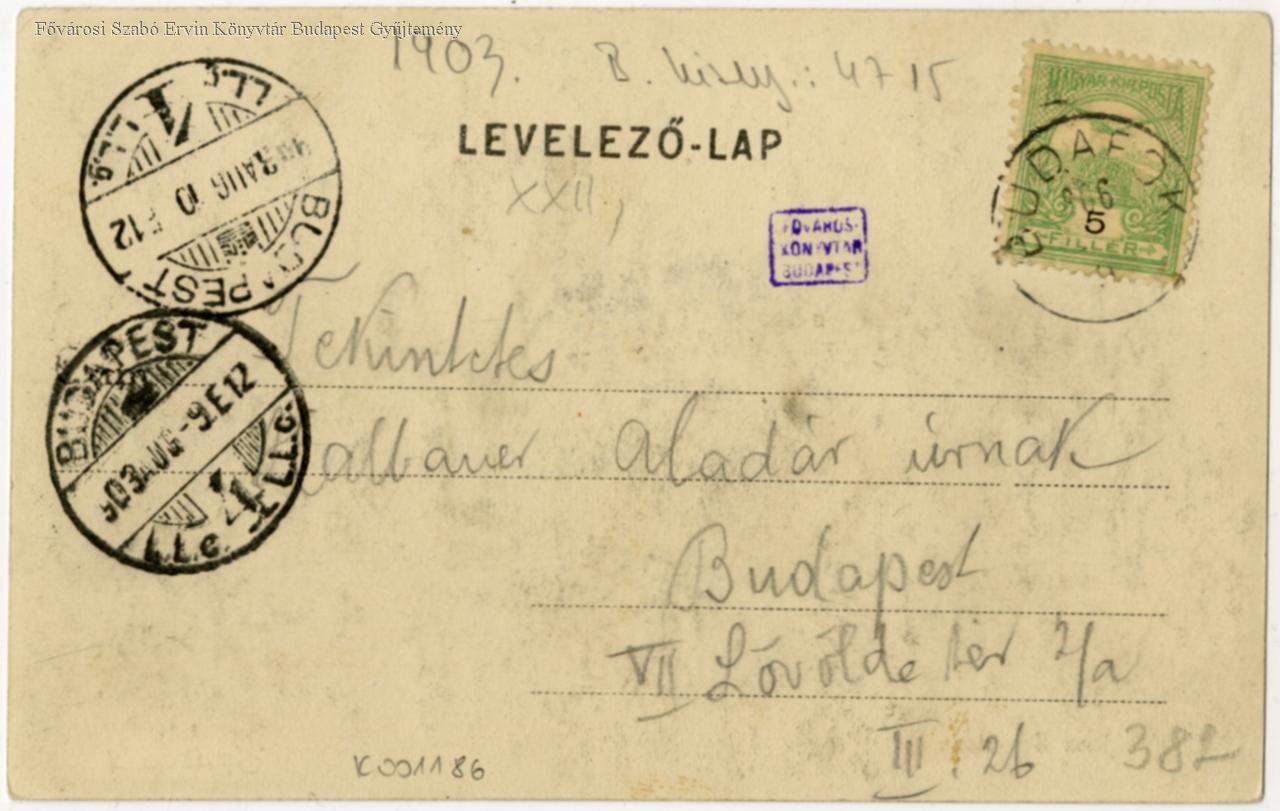 Fővárosi Szabó Ervin Könyvtár Budapest Gyűjtemény
1903. B. : 4715
LEVELEZŐ-LAP
XXII,
MAGYAR KIR. POSTA
5
FILLÉR
BUDAFOK
FŐVÁROSI
KÖNYVTÁR
BUDAPEST
BUDAPEST
903 AUG 10
BUDAPEST
903 AUG -9 E 12
Tekintetes
Aladár úrnak
Budapest
VII Lövölde tér 2/a
III. 26
382
K001186